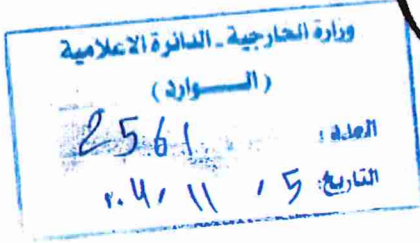 وزارة الخارجية ـ الدائرة الاعلامية
( الـــوارد )
العدد : 2561
التاريخ: 5 / 11 /